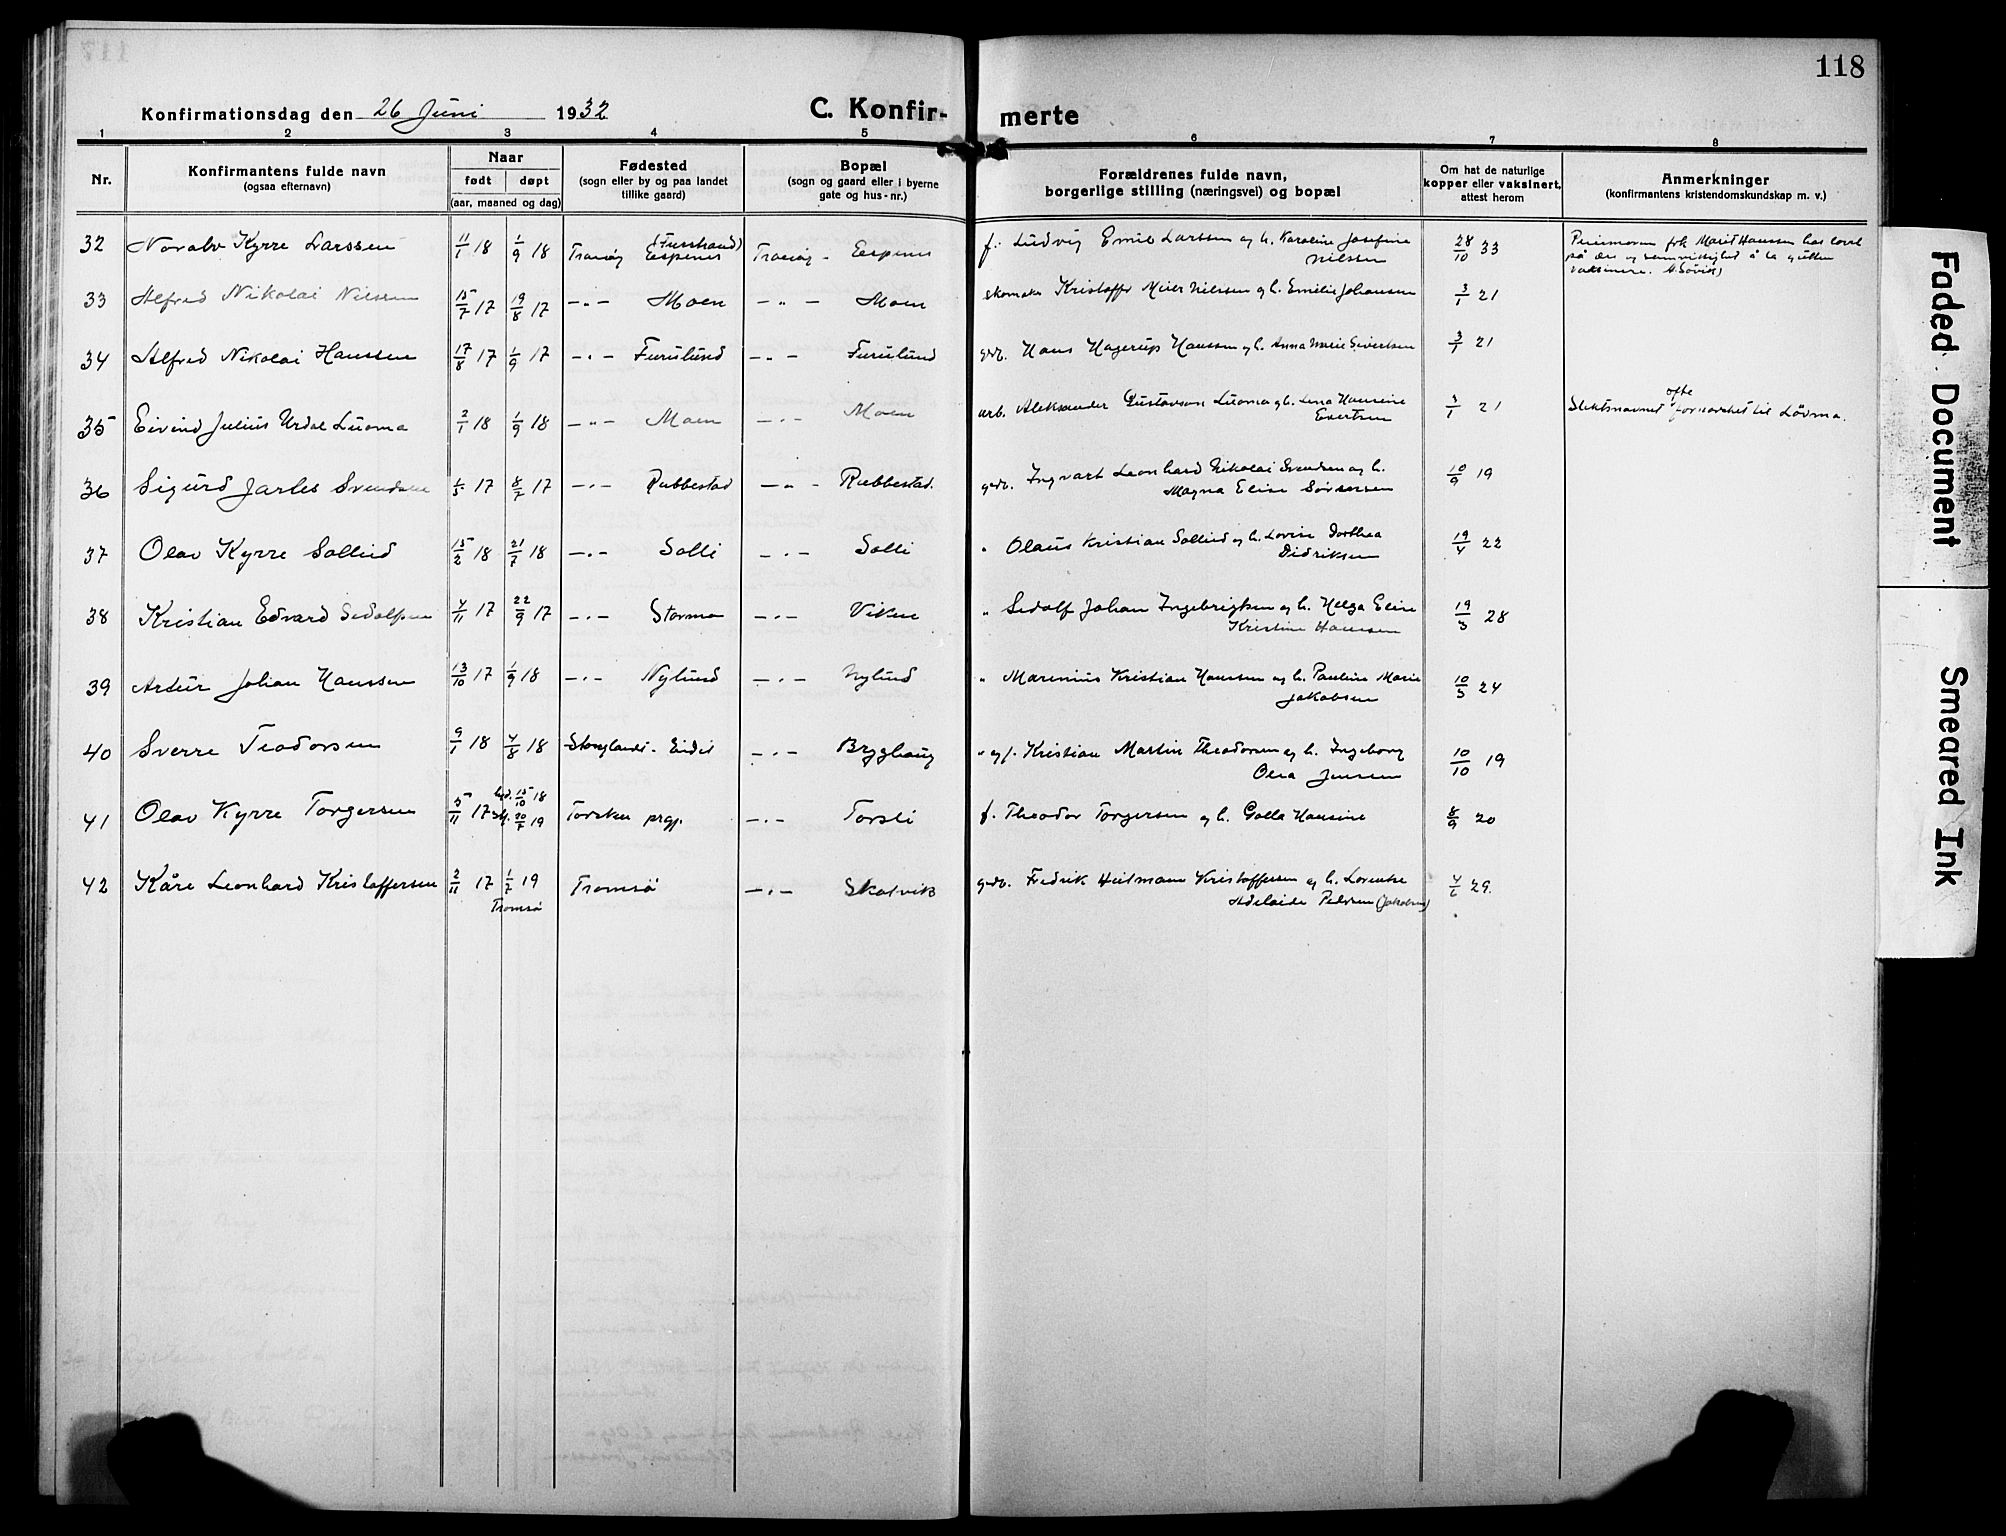 118
Konfirmationsdag den 26 Juni 1932
C. Konfir- merte
1 2 3 4 5 6 7 8
Nr.
Konfirmantens fulde navn
(ogsaa efternavn)
Naar
født døpt
(aar, maaned og dag)
Fødested
(sogn eller by og paa landet
tillike gaard)
Bopæl
(sogn og gaard eller i byerne
gate og hus-nr.)
Forældrenes fulde navn,
borgerlige stilling (næringsvei) og bopæl
Om hat de naturlige
kopper eller vaksinert,
attest herom
Anmerkninger
(konfirmantens kristendomskundskap m. v.)
32 Noralv Kyrre Larssen 11/1 18 1/9 18 Tranøy Espenes Tranøy - Espenes f. Ludvig Emil Larssen og h. Karoline Josefine 28/10 33
Nilssen
33 Alfred Nikolai Nilssen 15/7 17 19/8 17 -"- Moen -"- Moen skomaker Kristoffer Meier Nilssen og h. Emilie Johansen 3/1 21
34 Alfred Nikolai Hanssen 17/8 17 1/9 17 -"- Furulund -"- Furulund gdr. Hans Hagerup Hanssen og h. Anna Marie Sivertsen 3/1 21
35 Eivind Julius Urdal Luoma 2/1 18 1/9 18 -"- Moen -"- Moen arb. Aleksander Gustavson Luoma og h. Lena Hansine 3/1 21 Slektsnavnet ofte fornorsket til Løvma.
Evertsen
36 Sigurd Jarles Svendsen 1/5 17 8/7 17 -"- Rubbestad -"- Rubbestad. gdr. Ingvart Leonhard Nikolai Svendsen og h. 10/9 19
Magna Elise Sörensen
37 Olav Kyrre Sollied 15/2 18 21/7 18 -"- Solli -"- Solli " Olaus Kristian Sollied og h. Lovise Dorthea 19/4 22
Didriksen
38 Kristian Edvard Sedolfsen 4/11 17 22/9 17 -"- Stormo -"- Viken " Sedolf Johan Ingebrigtsen og h. Helga Elise 19/3 28
Kristine Hanssen
39 Artur Johan Hanssen 13/10 17 1/9 18 -"- Nylund -"- Nylund " Marenius Kristian Hanssen og h. Pauline Marie 10/3 24
Jakobsen
40 Sverre Teodorsen 9/1 18 4/8 18 Eidet -"- Brygghaug " og f. Kristian Martin Theodorsen og h. Ingeborg 10/10 19
Olea Jensen
41 Olav Kyrre Torgersen 5/11 17 15/10 18 20/7 19 Torsken prgj. -"- Torsli f. Theodor Torgersen og h. Golla Hansine 8/9 20
42 Kåre Leonhard Kristoffersen 2/11 17 1/7 19 Tromsö -"- Skatvik gdr. Fredrik Heitmann Kristoffersen og h. Lorentze 4/6 29.
Tromsø
Adelaide Pedersen (Jakobsen)
Faded Document
Smeared Ink